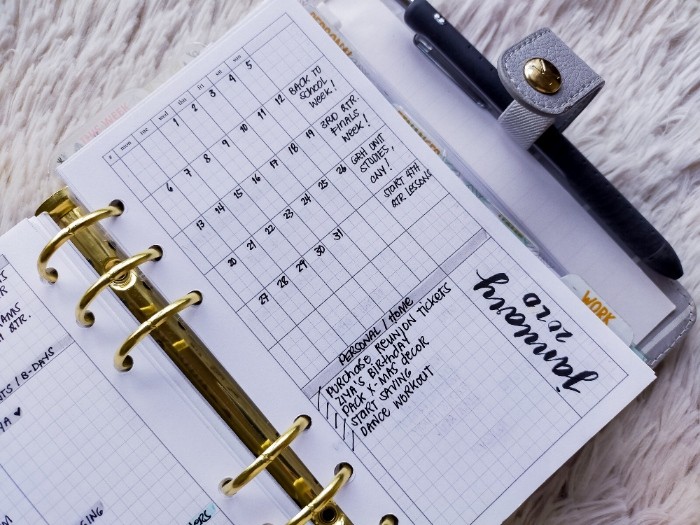 PERSONAL
mon tue wed thu fri sat sun
1 2 3 4 5
6 7 8 9 10 11 12
BACK TO
SCHOOL
WEEK!
13 14 15 16 17 18 19
3RD QTR.
FINALS
WEEK!
20 21 22 23 24 25 26
UNIT
STUDIES,
27 28 29 30 31
START 4TH
QTR LESSONS
PERSONAL / HOME
PURCHASE REUNION TICKETS
ZIYA'S BIRTHDAY
PACK X-MAS DECOR
START SAVING
DANCE WORKOUT
january
2020
WORK
QTR.
TS / B-DAYS
YA ♥